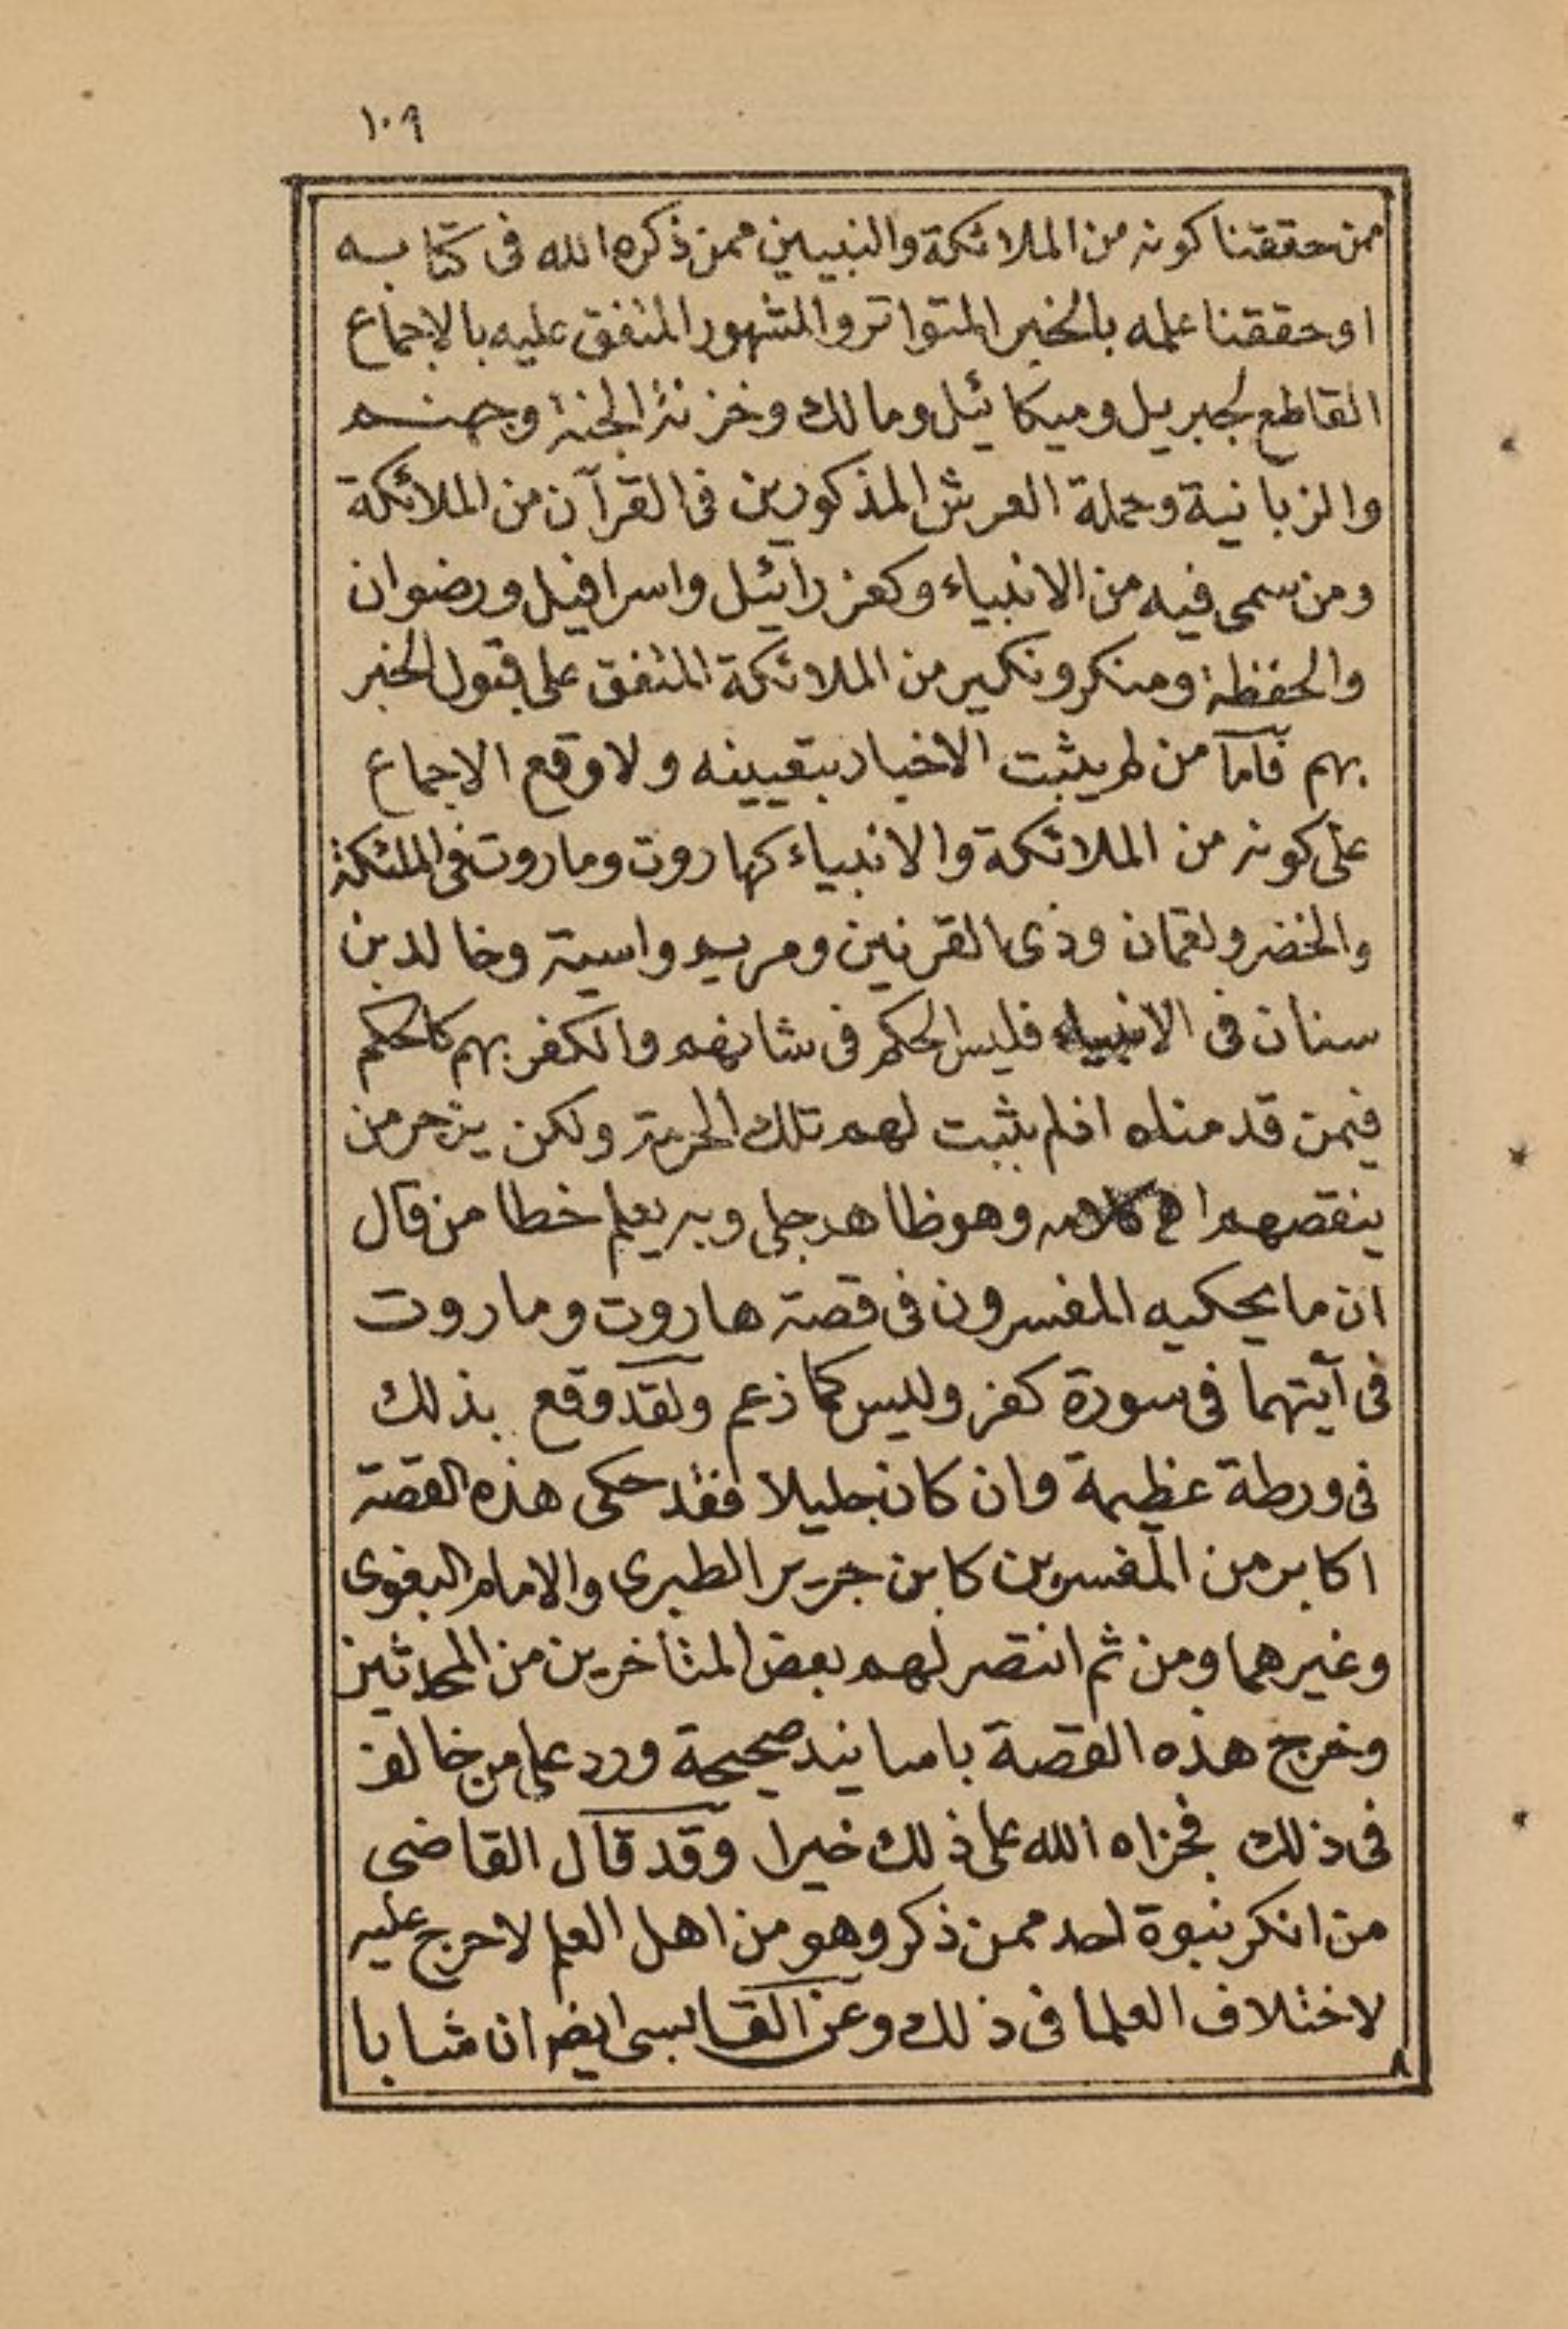 ١٠٩
ممن حققنا كونه من الملائكة والنبيين ممن ذكره الله فى كتابه
او حققنا علمه بالخبر المتواتر والمشهور المتفق عليه بالاجماع
القاطع لجبريل وميكائيل ومالك وخزنة الجنة وجهنم
والزبانية وحملة العرش المذكورين فى القرآن من الملائكة
ومن سمى فيه من الانبياء وكعزرائيل واسرافيل ورضوان
والحفظة ومنكر ونكير من الملائكة المتفق على قبول الخبر
بهم فاما من لم يثبت الاخبار بتعيينه ولا وقع الاجماع
على كونه من الملائكة والانبياء كهاروت وماروت فى الملئكة
والخضر ولقمان وذى القرنين ومريم واسية وخالد بن
سنان فى الانبياء فليس الحكم فى شانهم والكفر بهم كالحكم
فيمن قدمناه اذ لم يثبت لهم تلك الحرمة ولكن يزجر من
ينقصهم اه كلامه وهو ظاهر جلى وبه يعلم خطا من قال
ان ما يحكيه المفسرون فى قصة هاروت وماروت
فى آيتهما فى سورة كفر وليس كما زعم ولقد وقع بذلك
فى ورطة عظيمة وان كان جليلا فقد حكى هذه القصة
اكابر من المفسرين كابن جرير الطبرى والامام البغوى
وغيرهما ومن ثم انتصر لهم بعض المتأخرين من المحدثين
وخرج هذه القصة باسانيد صحيحة ورد على من خالف
فى ذلك فجزاه الله على ذلك خيرا وقد قال القاضى
من انكر نبوة احد ممن ذكر وهو من اهل العلم لا حرج عليه
لاختلاف العلما فى ذلك وعن القابسى ايضا ان شابا
٨